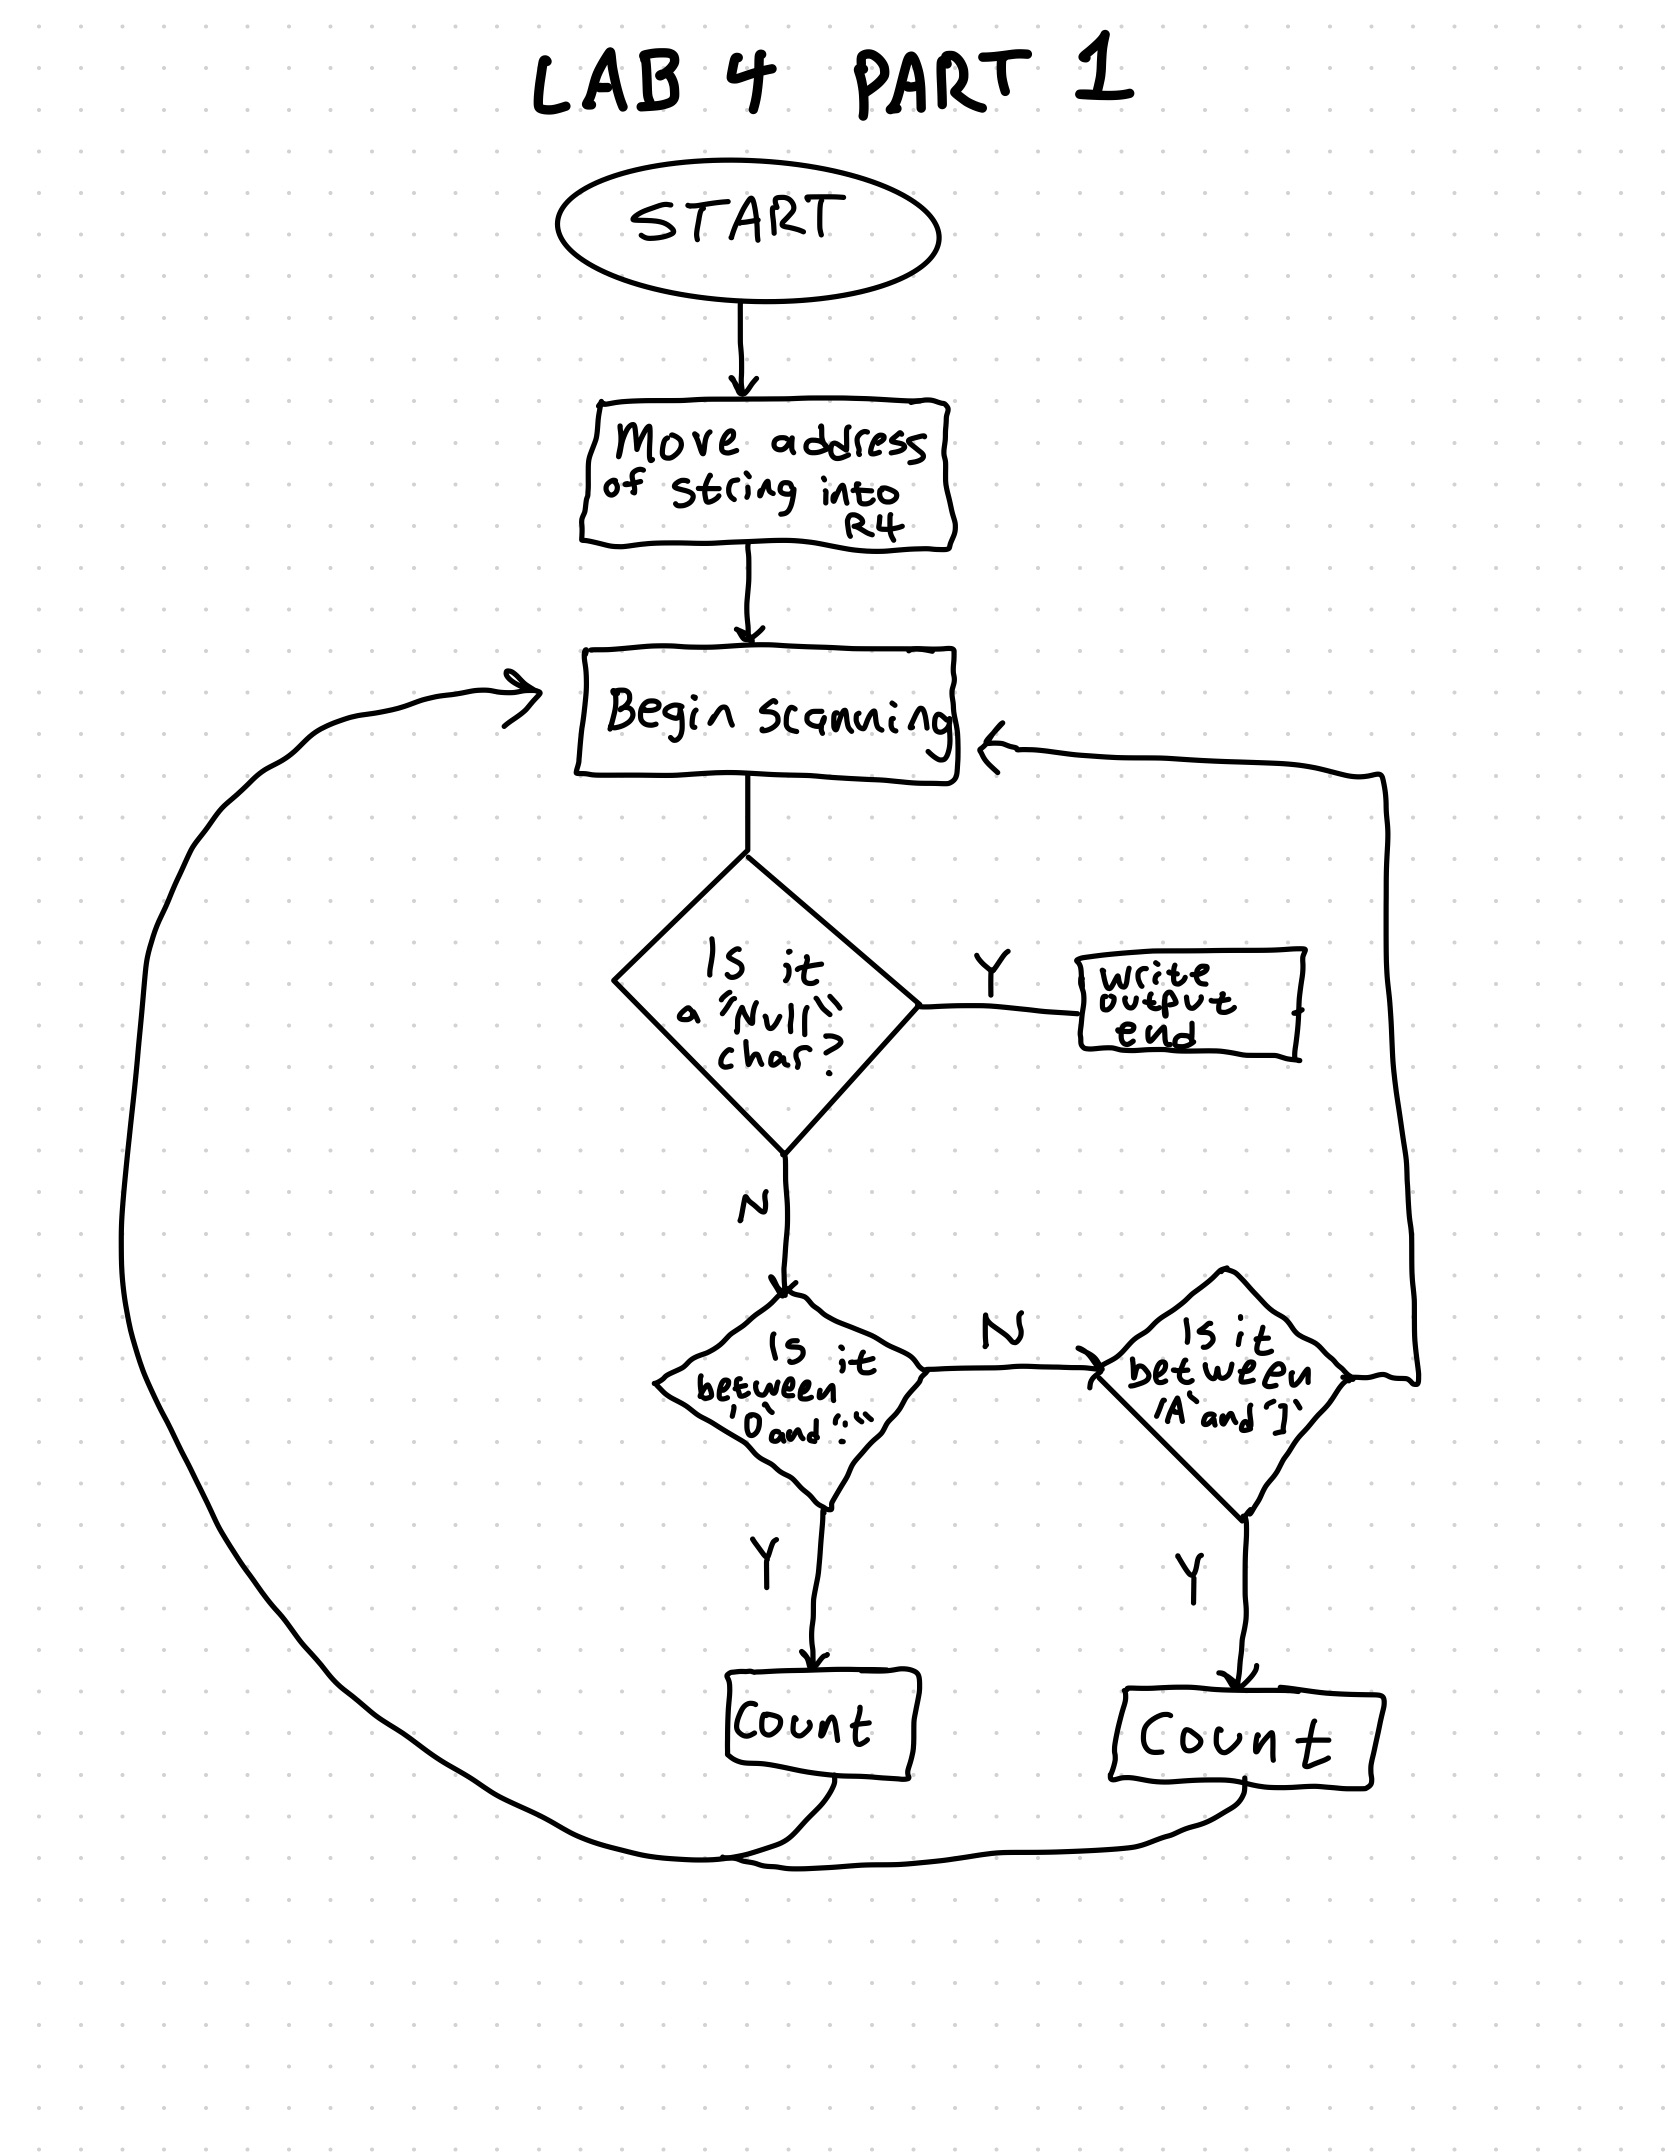 LAB 4 PART 1
START
Move address
of string into
R4
Begin scanning
Is it
a "Null"
char?
Y
write
output
end
N
Is it
between
'0' and ':'
N
Is it
between
'A' and '['
Y
Y
Count
Count